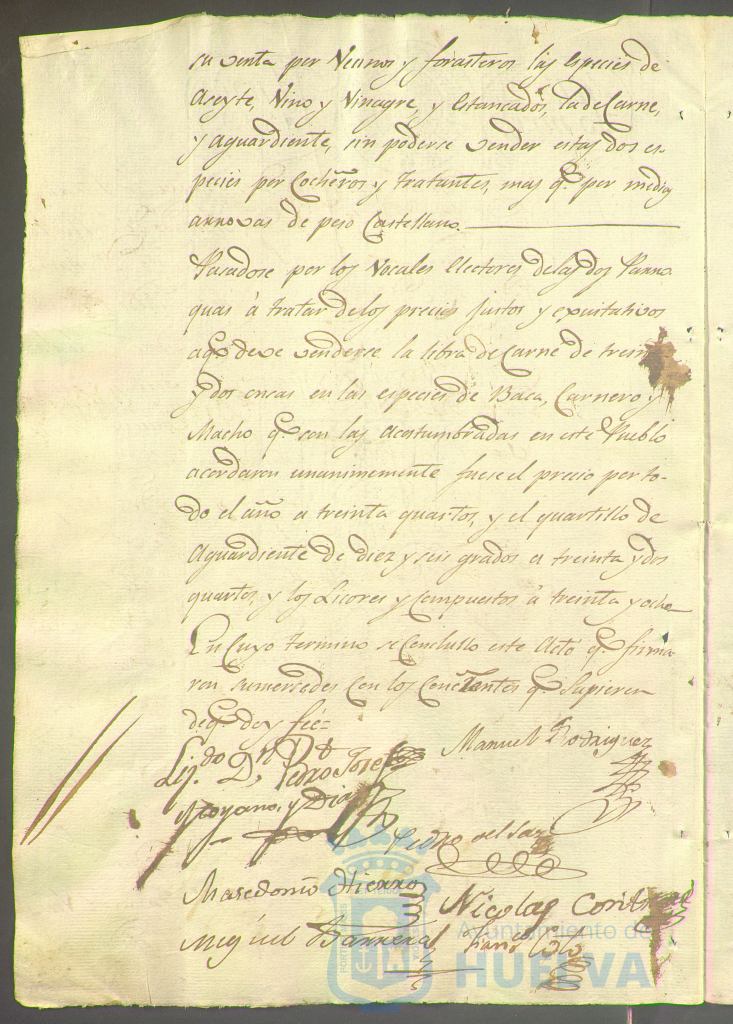 su venta por Vecinos y forasteros las especies de
Aseyte, Vino y Vinagre, y Estancados, la de Carne,
y aguardiente, sin poderse vender estas dos es-
pecies por Cocheros y Tratantes, mas q.e por medias
arrovas de peso Castellano.
Pasadose por los Vocales Electores de las dos Parro
quias á tratar de los precios justos y equitativos
aq.e deve venderse la libra de Carne de trein
y dos onsas en las especies de Baca, Carnero y
Macho q.e son las acostumbradas en este Pueblo
acordaron unanimemente fuese el precio por to-
do el año a treinta quartos, y el quartillo de
Aguardiente de diez y seis grados a treinta y dos
quartos, y los Licores y compuestos á treinta y ocho
En Cuyo termino se Conclullo este Acto q.e firma
ron sumercedes Con los Concurrentes q.e Supieron
deq.e doy feé=
Liz.do D.n Pedro Jose
Moyano, y Diaz
Manuel Rodriguez
Pedro del
Masedonio Hierro
Nicolas
Miguel Barrera
Ayuntamiento de
HUELVA